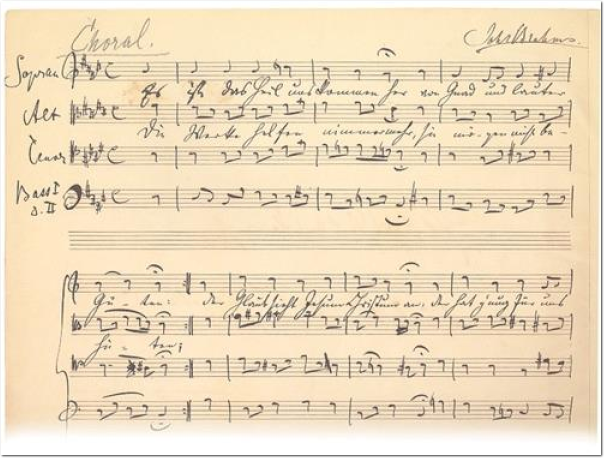 Choral. Joh. Brahms.
Sopran
Es ist das Heil uns kommen her von Gnad und lauter
Alt
Die Werke helfen nimmermehr, sie mögen nicht be-
Tenor
Bass I
u. II
Gü- ten: der Glaub sieht Jesum Christum an, der hat g'nug für uns
hü- ten;